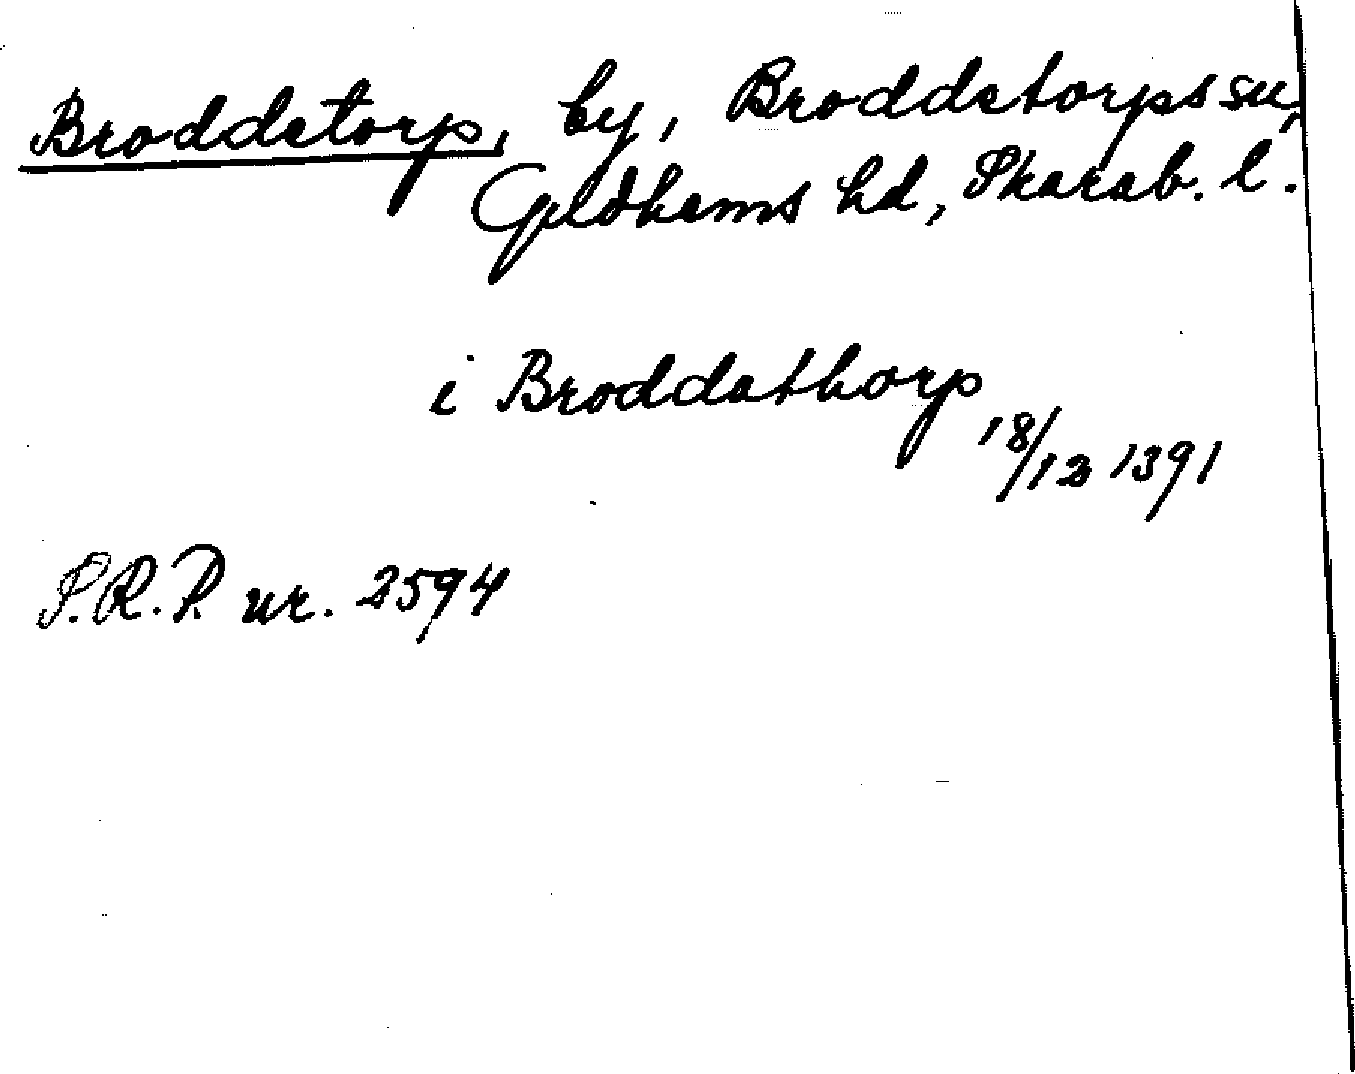 Broddetorp, by, Broddetorps sn,
Gudhems hd, Skarab. l.
i Broddathorp
18/12 1391
S.R.P. nr. 2594